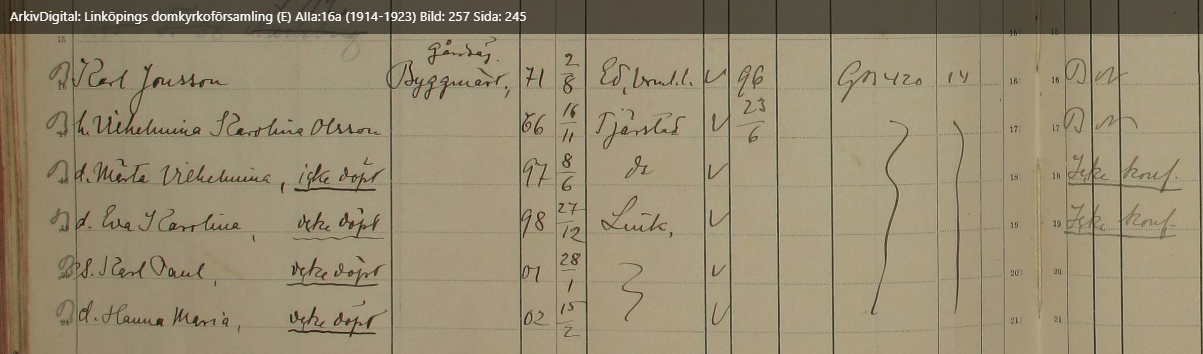 ArkivDigital: Linköpings domkyrkoförsamling (E) AIIa:16a (1914-1923) Bild: 257 Sida: 245
gårdsäg.
B Karl Jonsson Byggmäst, 71 2/8 Ed, 96 14 16 16 B
B h. Vilhelmina Karolina Olsson 66 16/11 Tjärstad 23/6 17 17 B
B d. Märta Vilhelmina, icke döpt 97 8/6 do 18 18 Icke konf.
B d. Eva Karolina, icke döpt 98 27/12 Link, 19 19 Icke konf.
B s. Karl Paul, icke döpt 01 28/1 20 20
B d. Hanna Maria, icke döpt 02 15/2 21 21